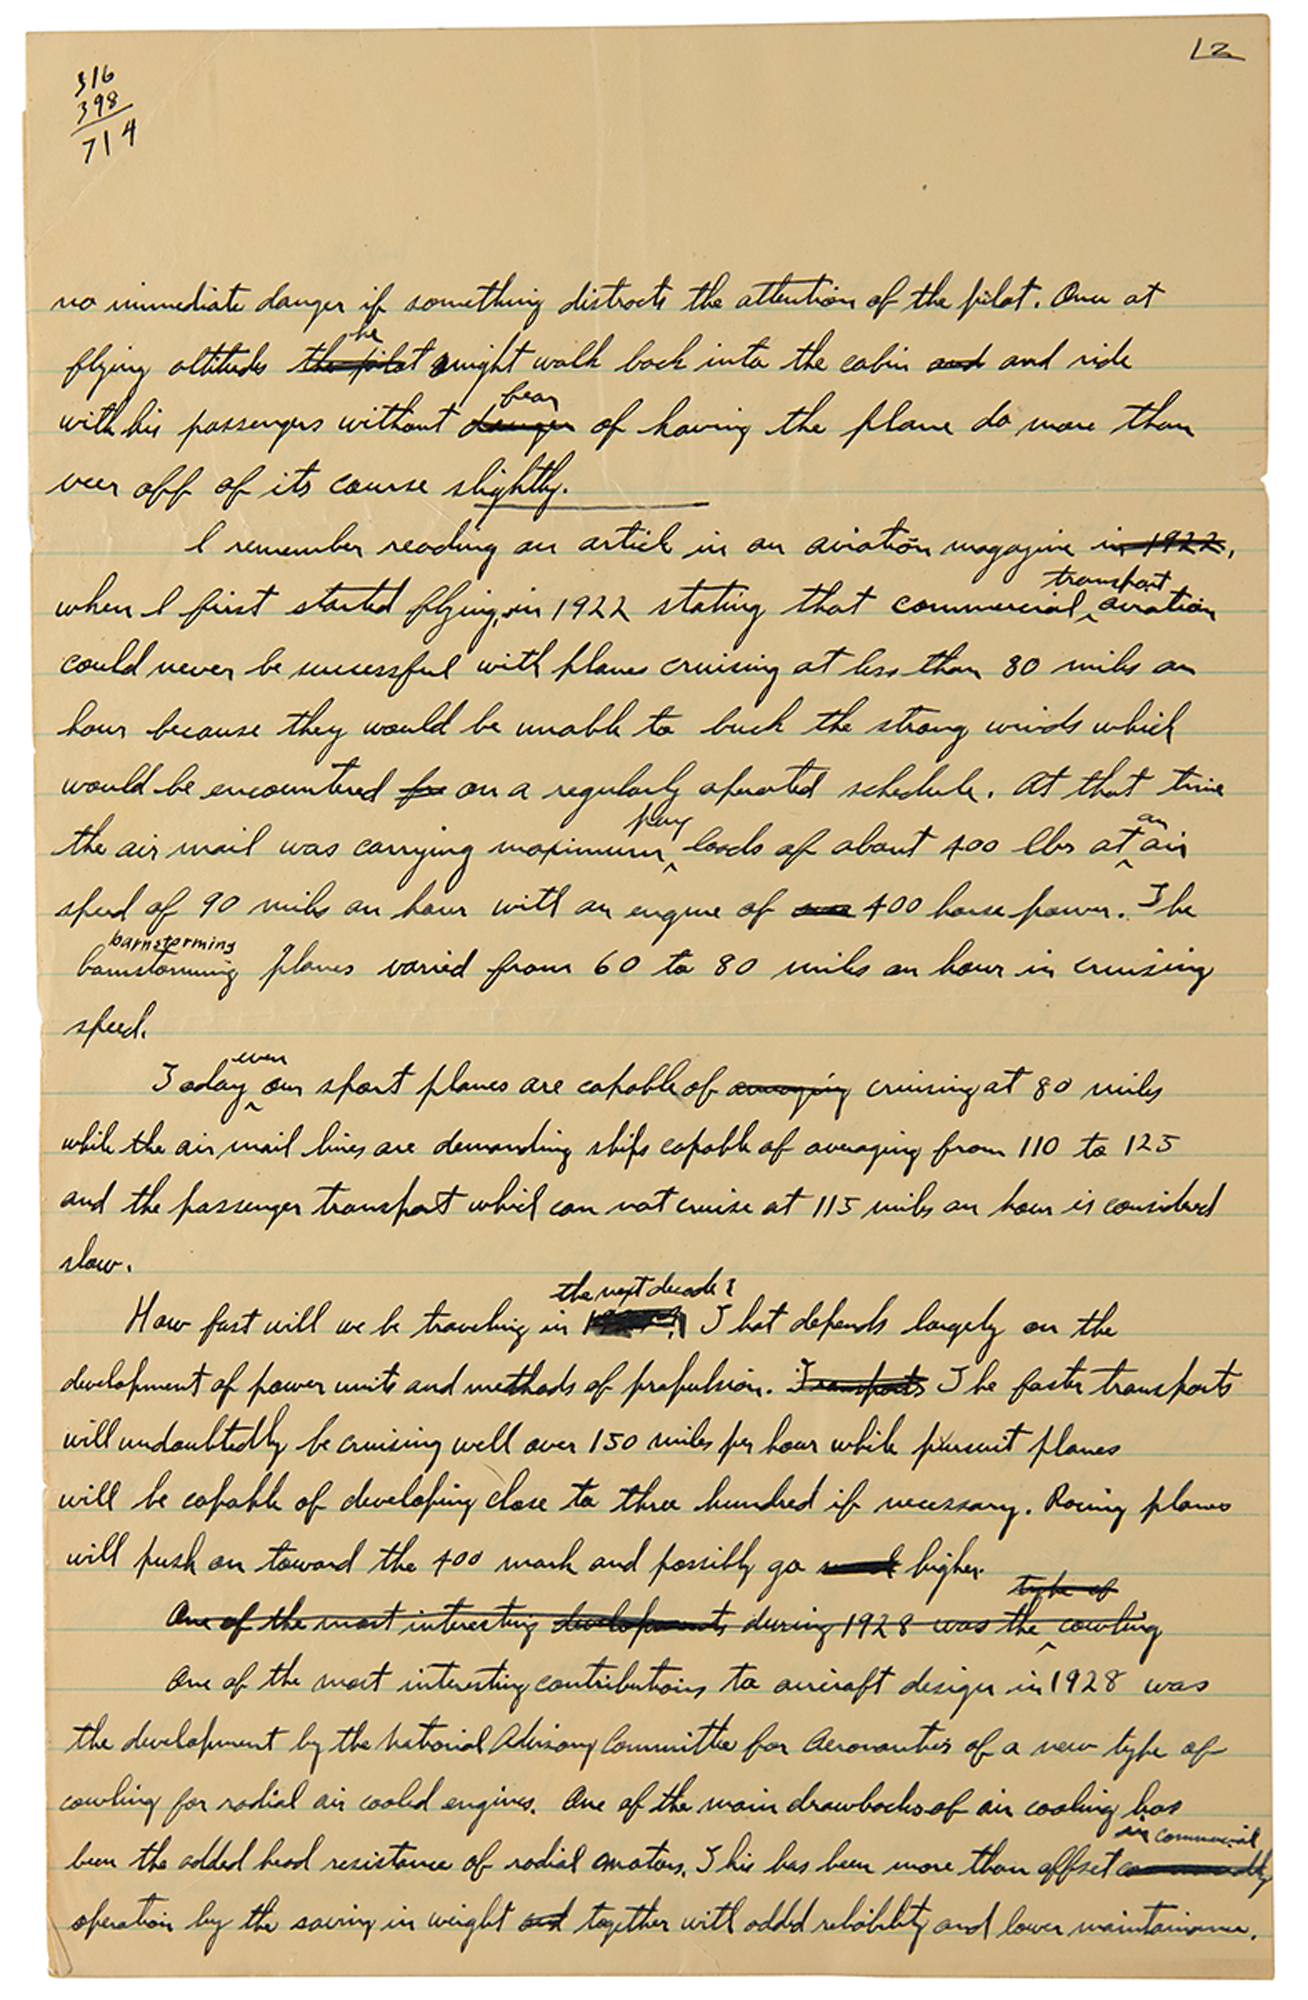 12
316
398
714
no immediate danger if something distracts the attention of the pilot. Once at
he
flying altitude the pilot might walk back into the cabin and and ride
fear
with his passengers without danger of having the plane do more than
veer off of its course slightly.
I remember reading an article in an aviation magazine in 1922,
transport
when I first started flying, in 1922 stating that commercial aviation
could never be successful with planes cruising at less than 80 miles an
hour because they would be unable to buck the strong winds which
would be encountered for on a regularly operated schedule. At that time
pay an
the air mail was carrying maximum loads of about 400 lbs at air
speed of 90 miles an hour with an engine of 400 horse power. The
barnstorming
barnstorming planes varied from 60 to 80 miles an hour in cruising
speed.
even
Today our sport planes are capable of averaging cruising at 80 miles
while the air mail lines are demanding ships capable of averaging from 110 to 125
and the passenger transport which can not cruise at 115 miles an hour is considered
slow.
the next decade?
How fast will we be traveling in That depends largely on the
development of power units and methods of propulsion. Transports The faster transports
will undoubtedly be cruising well over 150 miles per hour while pursuit planes
will be capable of developing close to three hundred if necessary. Racing planes
will push on toward the 400 mark and possibly go much higher.
type of
One of the most interesting developments during 1928 was the cowling
One of the most interesting contributions to aircraft design in 1928 was
the development by the National Advisory Committee for Aeronautics of a new type of
cowling for radial air cooled engines. One of the main drawbacks of air cooling has
in commercial
been the added head resistance of radial motors. This has been more than offset
operation by the saving in weight and together with added reliability and lower maintainance.